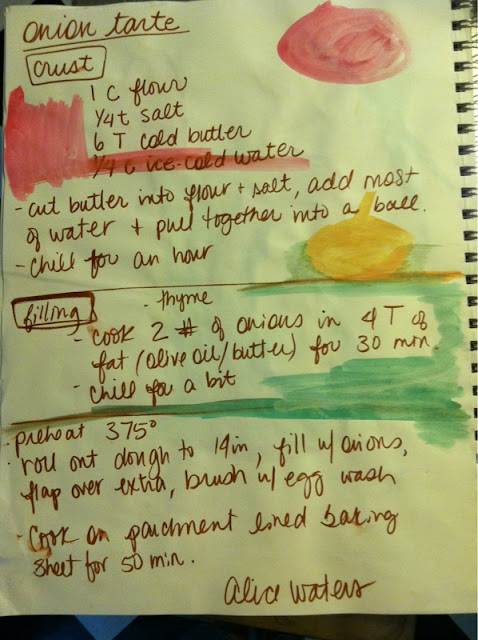 onion tarte
crust
1 C flour
1/4 t salt
6 T cold butter
1/4 c ice-cold water
- cut butter into flour + salt, add most
of water + pull together into a ball.
- chill for an hour
filling
- thyme
- cook 2 # of onions in 4 T of
fat (olive oil/butter) for 30 min.
- chill for a bit
- preheat 375°
- roll out dough to 14in, fill w/ onions,
flap over extra, brush w/ egg wash
- Cook on parchment lined baking
sheet for 50 min.
Alice Waters